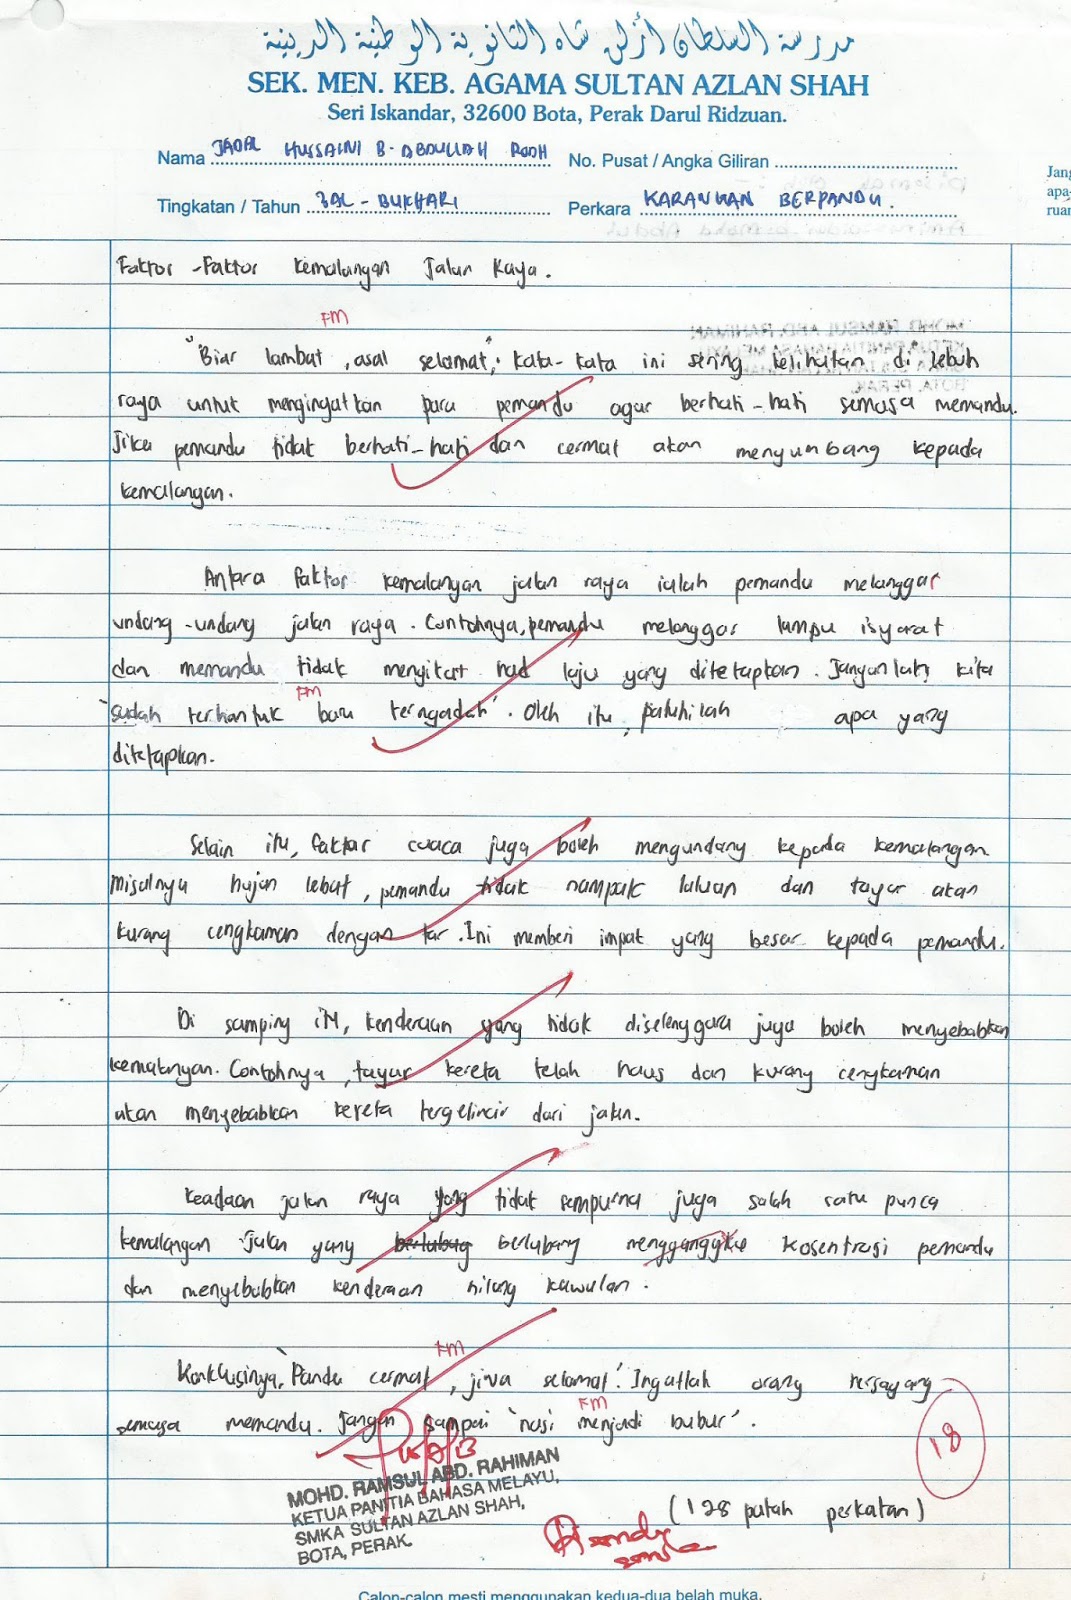 مدرسة السلطان أزلن شاه الثانوية الوطنية الدينية
SEK. MEN. KEB. AGAMA SULTAN AZLAN SHAH
Seri Iskandar, 32600 Bota, Perak Darul Ridzuan.
Nama JADAL HUSSAINI B. ABDULLAH No. Pusat / Angka Giliran
Tingkatan / Tahun 3AL-BUKHARI Perkara KARANGAN BERPANDU.
Jang
apa-
ruan
Faktor-Faktor Kemalangan Jalan Raya.
FM
"Biar lambat, asal selamat". Kata-kata ini sering kelihatan di lebuh
raya untuk mengingatkan para pemandu agar berhati-hati semasa memandu.
Jika pemandu tidak berhati-hati dan cermat akan menyumbang kepada
kemalangan.
Antara faktor kemalangan jalan raya ialah pemandu melanggar
undang-undang jalan raya. Contohnya, pemandu melanggar lampu isyarat
dan memandu tidak mengikut had laju yang ditetapkan. Janganlah kita
FM
'sudah terhantuk baru terngadah'. Oleh itu, patuhilah apa yang
ditetapkan.
Selain itu, faktor cuaca juga boleh mengundang kepada kemalangan.
Misalnya hujan lebat, pemandu tidak nampak laluan dan tayar akan
kurang cengkaman dengan tar. Ini memberi impak yang besar kepada pemandu.
Di samping itu, kenderaan yang tidak diselenggara juga boleh menyebabkan
kemalangan. Contohnya, tayar kereta telah haus dan kurang cengkaman
akan menyebabkan kereta tergelincir dari jalan.
Keadaan jalan raya yang tidak sempurna juga salah satu punca
kemalangan. Jalan yang berlubag berlubang mengganggu kosentrasi pemandu
dan menyebabkan kenderaan hilang kawalan.
FM
Konklusinya, 'Pandu cermat, jiwa selamat'. Ingatlah orang tersayang
FM
semasa memandu. Jangan sampai 'nasi menjadi bubur'.
18
MOHD. RAMSUL ABD. RAHIMAN
KETUA PANITIA BAHASA MELAYU,
SMKA SULTAN AZLAN SHAH,
BOTA, PERAK.
(128 patah perkatan)
Calon-calon mesti menggunakan kedua-dua belah muka.